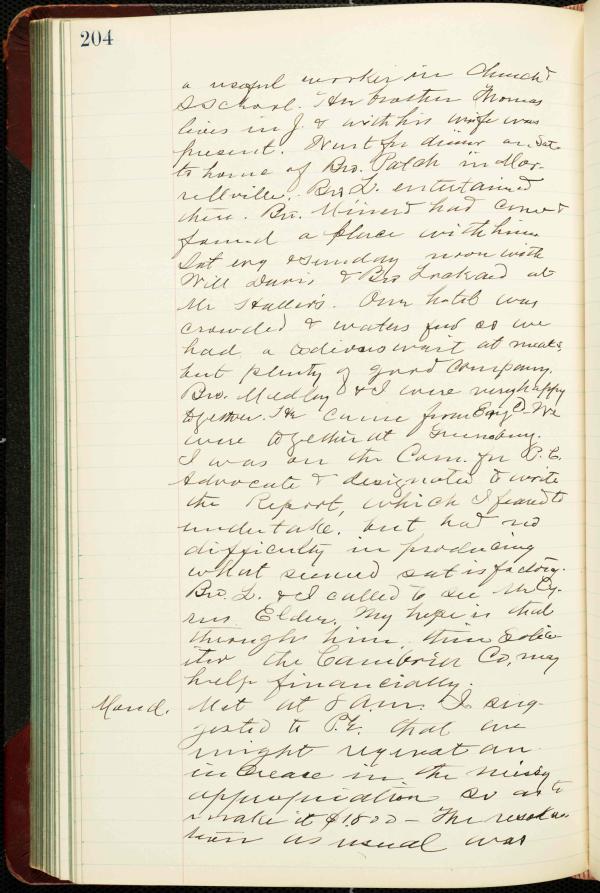 204
a useful worker in church &
S School. Her brother Thomas
lives in J. & with his wife was
present. Went for dinner on Sat
to home of Bro. Patch in Mor-
rellville. Bro L. entertained
there. Bro. had &
found a place with him
Sat evg & Sunday noon with
Will Davis & Bro at
Mr Our hotel was
crowded & waters few so we
had a tedious wait at meals
but plenty of good company.
Bro. Medley & I were very happy
together. He came from Engd. We
were together at Greensburg.
I was on the Com. for P. C.
Advocate & designated to write
the Report, which I feared to
undertake, but had no
difficulty in producing
what seemed satisfactory.
Bro. L. & I called to see Mr Cy-
rus Elder. My hope is that
through him, the Solic-
itor the Cambria Co, may
help financially.
Mond. Met at 8 a.m. I sug-
gested to P.E. that we
might request an
increase in the missy
appropriation so as to
make it $1800 - The resolu-
tion as usual was